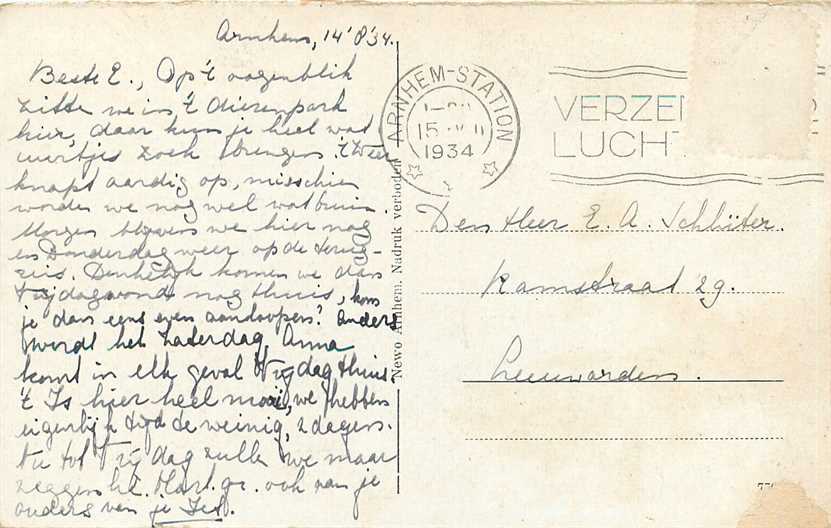 Arnhem, 14' 8' 34.
Beste E., Op 't oogenblik
zitten we in 't dierenpark
hier, daar kun je heel wat
uurtjes zoek brengen. 't Weer
knapt aardig op, misschien
worden we nog wel wat bruin.
Morgen blijven we hier nog
en Donderdag weer op de terug-
reis. Denkelijk komen we dan
Vrijdagavond nog thuis, kom
je dan eens even aanloopen? Anders
wordt het Zaterdag, Anna
komt in elk geval Vrijdag thuis.
't Is hier heel mooi, we hebben
eigenlijk tijd te weinig, 2 dagen.
Nu tot Vrijdag zullen we maar
zeggen hè. Hart. gr. ook aan je
ouders van je
Newo Arnhem. Nadruk verboden
ARNHEM-STATION
15
1934
VERZEN
LUCHT
Den Heer E. A. Schlüter.
Ramstraat 29.
Leeuwarden.